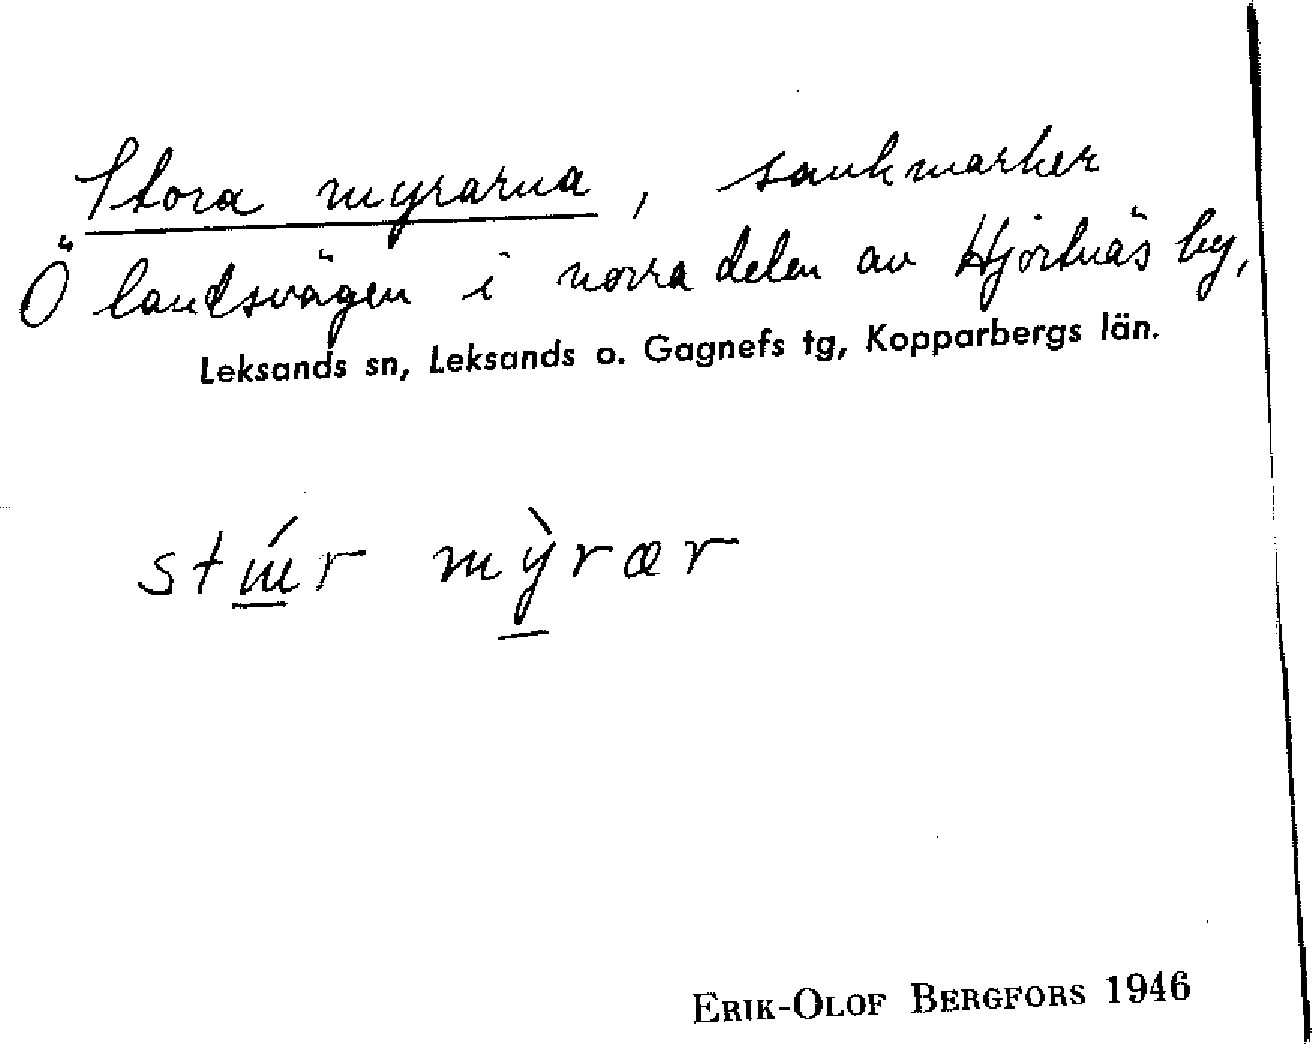 Stora myrarna, sankmarker
Ö landsvägen i norra delen av Hjortnäs by,
Leksands sn, Leksands o. Gagnefs tg, Kopparbergs län.
mỳrær
ERIK-OLOF BERGFORS 1946